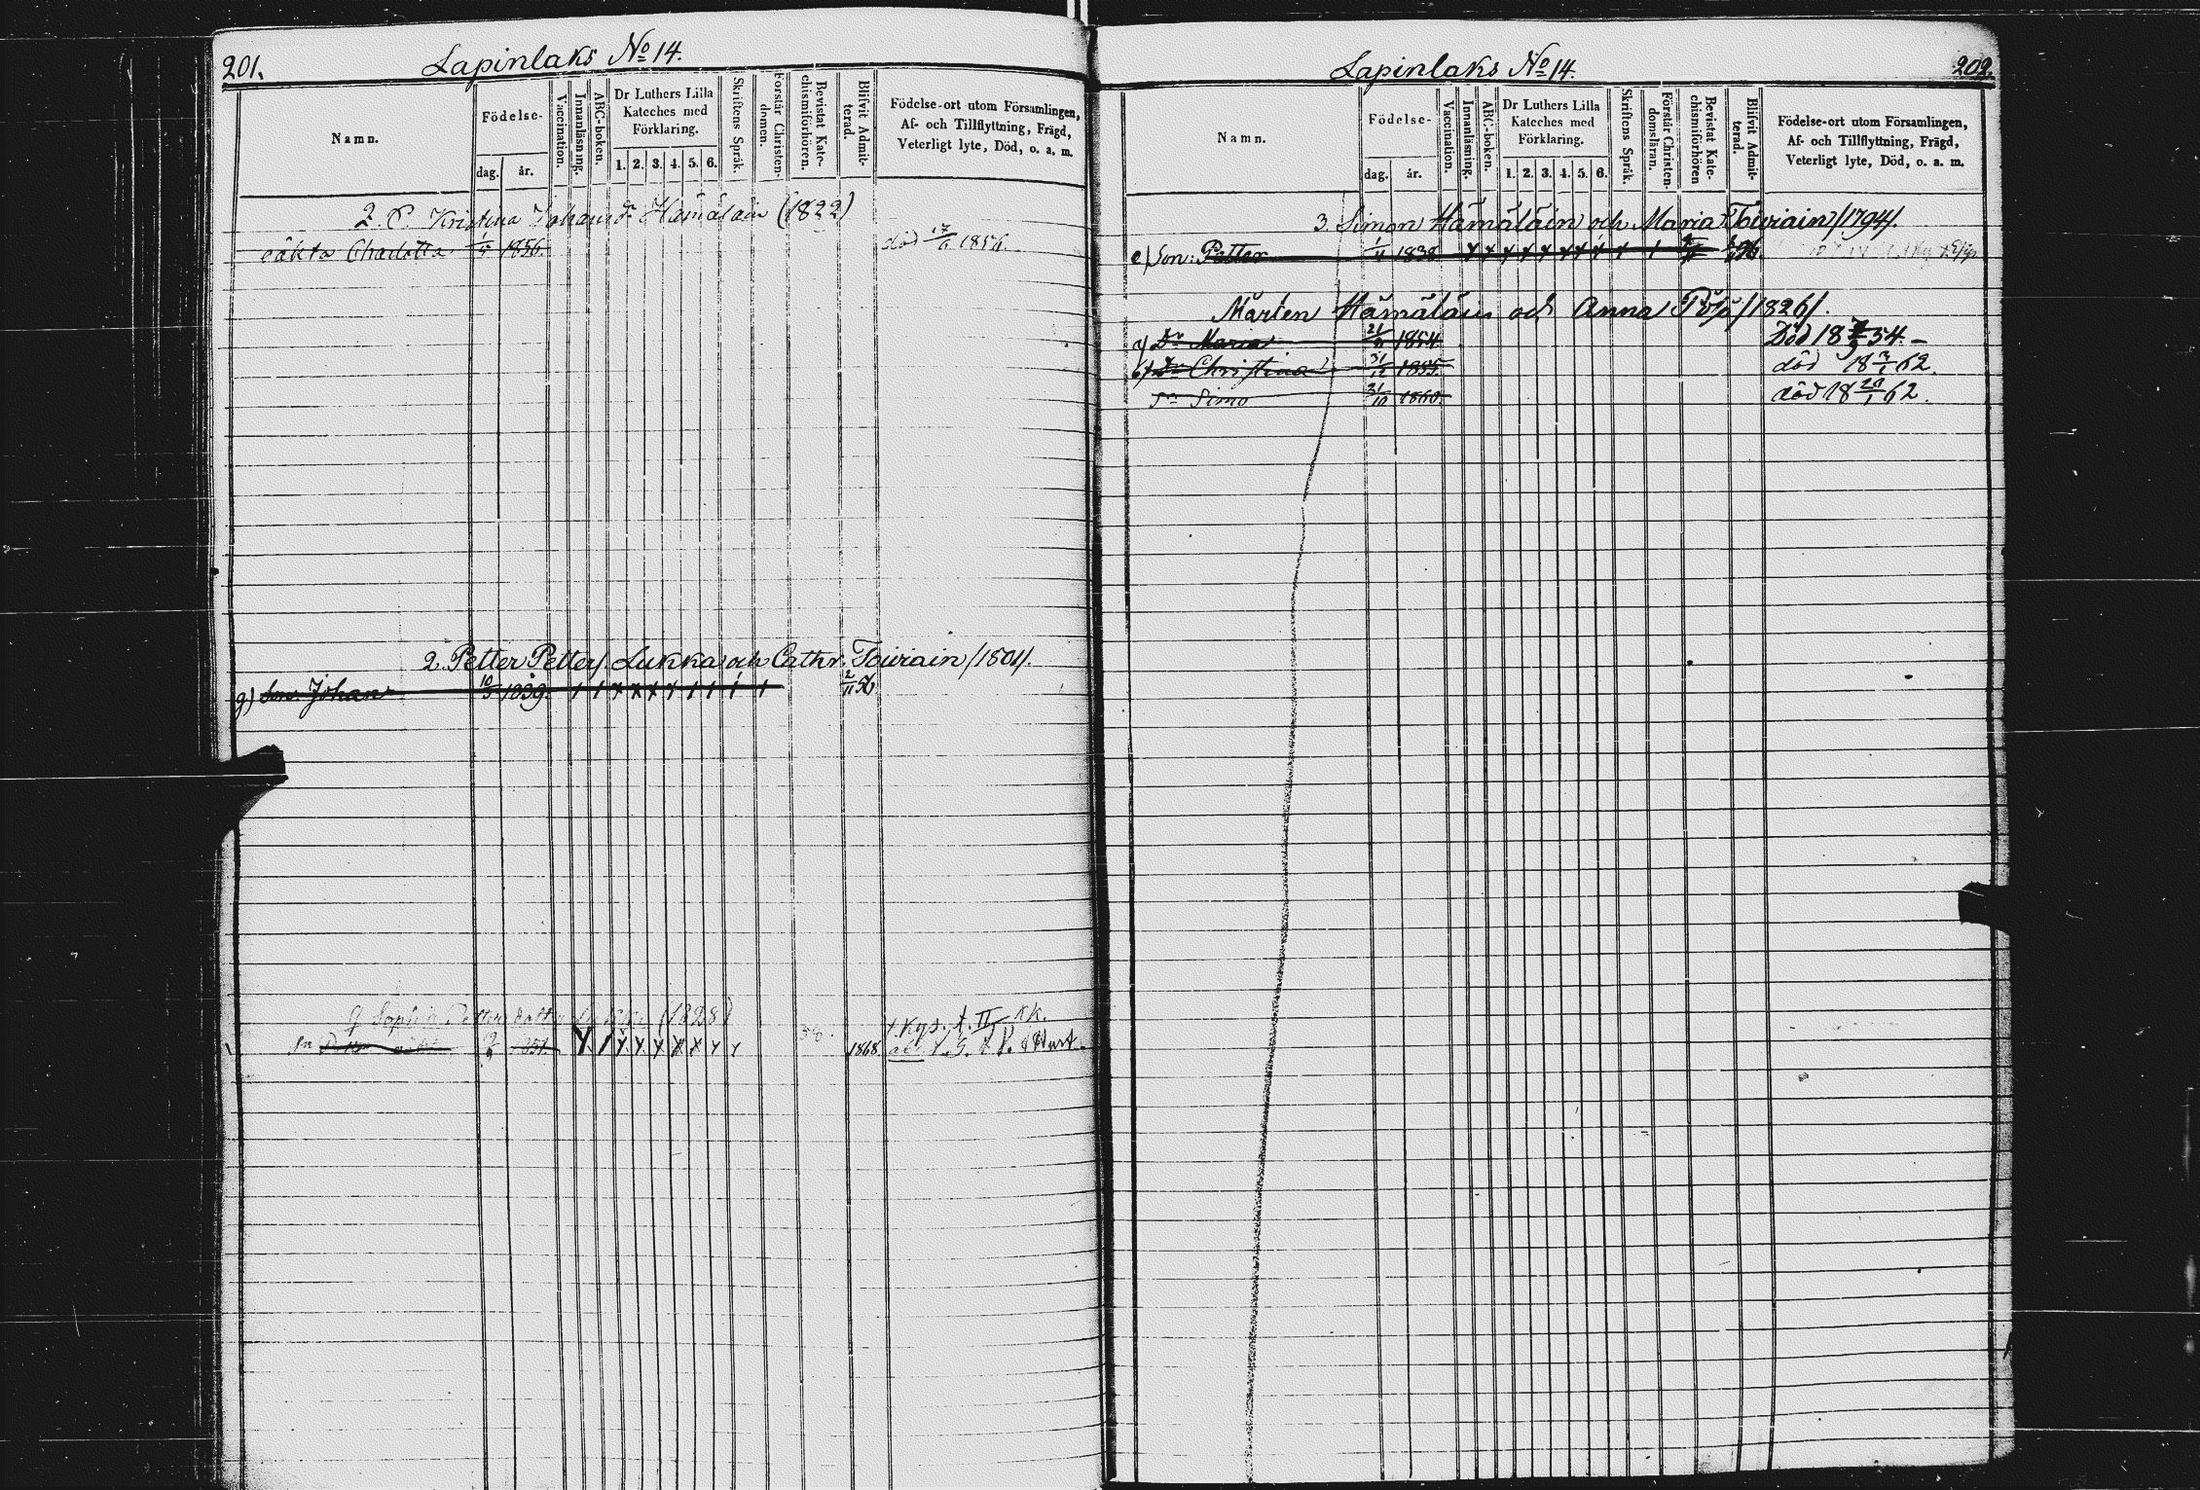 201.
Lapinlaks No 14.
Namn.
Födelse-
dag.
år.
Vaccination.
Innanläsning.
ABC-boken.
Dr Luthers Lilla
Kateches med
Förklaring.
1. 2. 3. 4. 5. 6.
Skriftens Språk.
Förstår Christen-
domen.
Bevistat Kate-
chismiförhören.
Blifvit Admit-
terad.
Födelse-ort utom Församlingen,
Af- och Tillflyttning, Frägd,
Veterligt lyte, Död, o. a. m.
2. P. Kristina Johansdr Hämäläin (1822)
oäkta Charlotta 1856. död 1856.
2. Petter Petters. Lukka och Cathr. Toiviain /1801/.
g) Son Johan 10/5 1839. 2/11 56
Sophia Petter (1828)
Sn 1868
202.
Lapinlaks No 14.
Namn.
Födelse-
dag.
år.
Vaccination.
Innanläsning.
ABC-boken.
Dr Luthers Lilla
Kateches med
Förklaring.
1. 2. 3. 4. 5. 6.
Skriftens Språk.
Förstår Christen-
domsläran.
Bevistat Kate-
chismiförhören
Blifvit Admit-
terad.
Födelse-ort utom Församlingen,
Af- och Tillflyttning, Frägd,
Veterligt lyte, Död, o. a. m.
3. Simon Hämäläin och Maria Toiviain /1794/.
e) Son: Petter 1838
Mårten Hämäläin och Anna Pöyö /1826/.
a) Dr Maria 1854. Död 18 54.
b) Dr Christina 1855. död 18 62.
Sn Simo 31/10 1860. död 18 62.